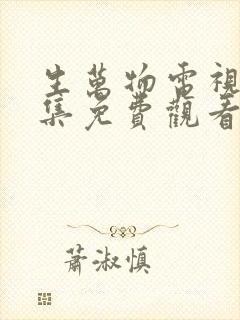 生萬物電視
集免費觀看
蕭淑慎